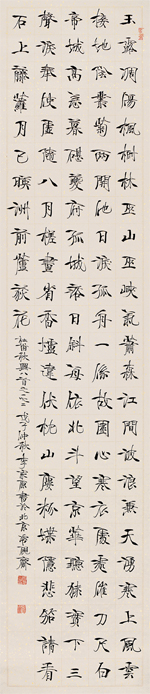 玉露凋傷楓樹林巫山巫峽氣蕭森江間波浪兼天湧塞上風雲
接地陰叢菊兩開他日淚孤舟一係故園心寒衣處處催刀尺白
帝城高急暮砧夔府孤城日斜每依北斗望京華聽猿實下三
聲淚奉使虛隨八月槎畫省香爐違伏枕山樓粉堞隱悲笳請看
石上藤蘿月已映洲前蘆荻花
杜甫秋興八首之一之二 戊子仲秋李書於北京齋